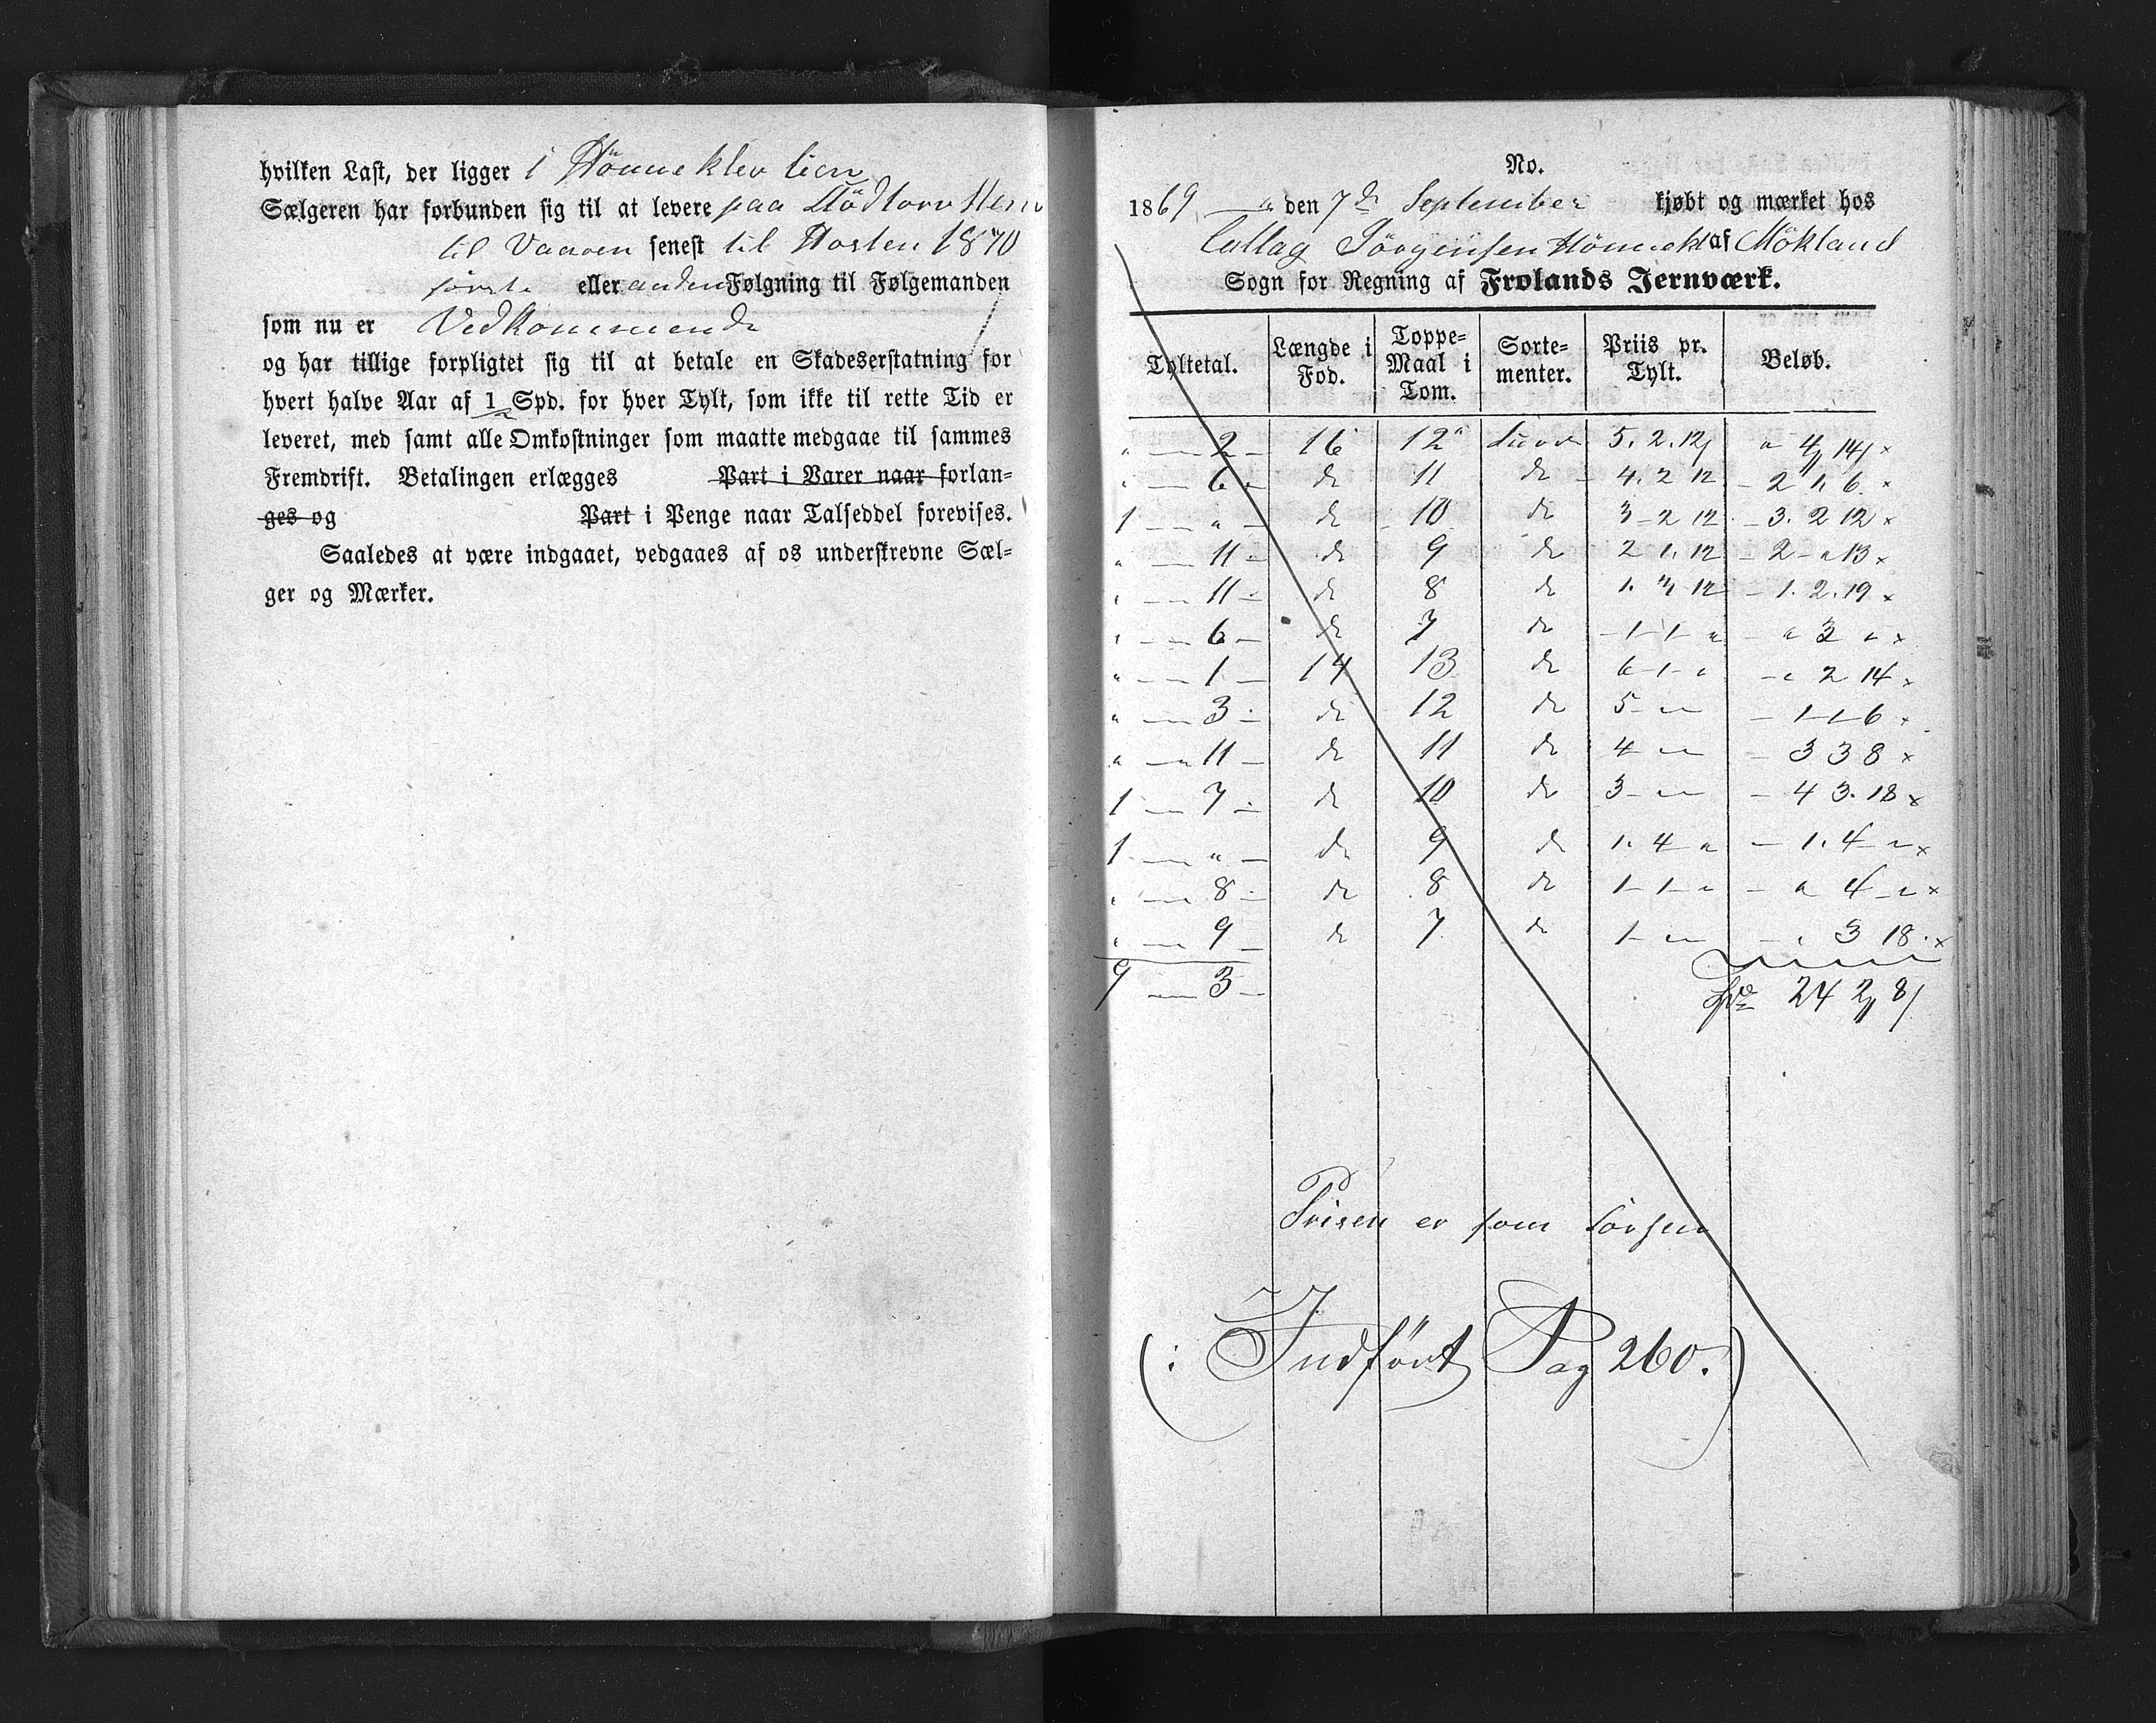 hvilken Last, der ligger i Hönneklev lien
Sælgeren har forbunden sig til at levere paa
til Vaaren senest til Hosten 1870
förste eller anden Følgning til Følgemanden
som nu er Vedkommende
og har tillige forpligtet sig til at betale en Skadeserstatning for
hvert halve Aar af 1 Spd. for hver Tylt, som ikke til rette Tid er
leveret, med samt alle Omkostninger som maatte medgaae til sammes
Fremdrift. Betalingen erlægges Part i Varer naar forlan-
ges og Part i Penge naar Talseddel forevises.
Saaledes at være indgaaet, vedgaaes af os underskrevne Sæl-
ger og Mærker.
No.
1869 den 7de September kjøbt og mærket hos
Jörgensen Hönnekl af Mökland
Sogn for Regning af Frolands Jernværk.
Tyltetal. Længde i Fod. Toppe-Maal i Tom. Sorte-menter. Priis pr. Tylt. Beløb.
" 2 16 12" Furu 5. 2. 12 " 4 14 x
" 6 do 11 do 4. 2 12 2 1. 6. x
1 " do 10 do 3 2 12 3. 2 12 x
" 11 do 9 do 2 1. 12 2 " 13 x
" 11 do 8 do 1. 3 12 1. 2. 19 x
" 6 do 7 do 1 1 " " 3 " x
" 1 14 13 do 6 1 " " 2 14 x
" 3 do 12 do 5 " " 1 1 6 x
" 11 do 11 do 4 " " 3 3 8 x
1 7 do 10 do 3 " " 4 3. 18 x
1 " do 9 do 1. 4 " 1. 4 " x
" 8 do 8 do 1 1 " " 4 " x
" 9 do 7 do 1 " " " 3 18. x
9 3 Spd 24 2 8
Prisen er som forhen
(: Indført Pag 260. )